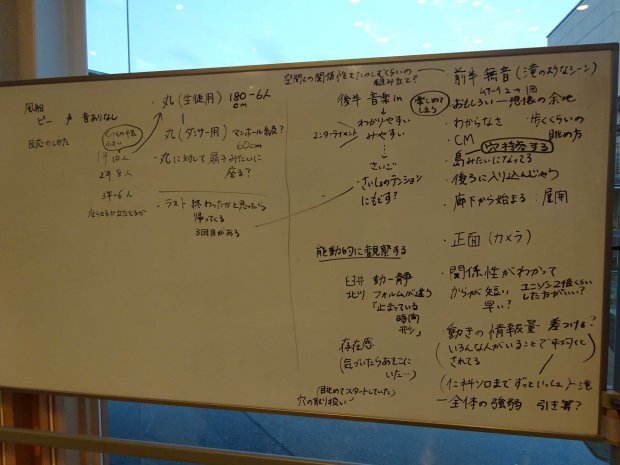 風船
ピー 声 音ありなし
反応のしかた
1年 10人
2年 8人
3年-6人
座らせるか立たせるか
・丸(生徒用) 180-6人
cm
丸(ダンサー用) マンホール
60cm
・丸に対して扇子みたいに
座る?
・ラスト 終わったかと思ったら
帰ってくる
3回目がある
空間との関係性で
組み立て?
後半 音楽 in
わかりやすい
みやすい
エンターテイメント
さいご
・さいしょのテンション
にもどす?
能動的に観察する
動-静
フォルムが違う
「止まっている
時間
存在感
(気づいたらあそこに
いた…)
(眺めてスタートしていた)
穴の取り扱い
・前半 無音(滝のようなシーン)
・おもしろい-想像の余地
・わからなさ ・歩くくらいの
眺め方
・CM
・島みたいになってる
・後ろに入り込んじゃう
・廊下から始まる:展開
・正面(カメラ)
・関係性がわかって
からが短い
早い?
ユニゾン2倍くらい
した方がいい?
・動きの情報量 差つける?
(いろんな人がいることで平均化
されてる
(仁科ソロまでずっといっしょ)-滝
-全体の強弱 引き算?